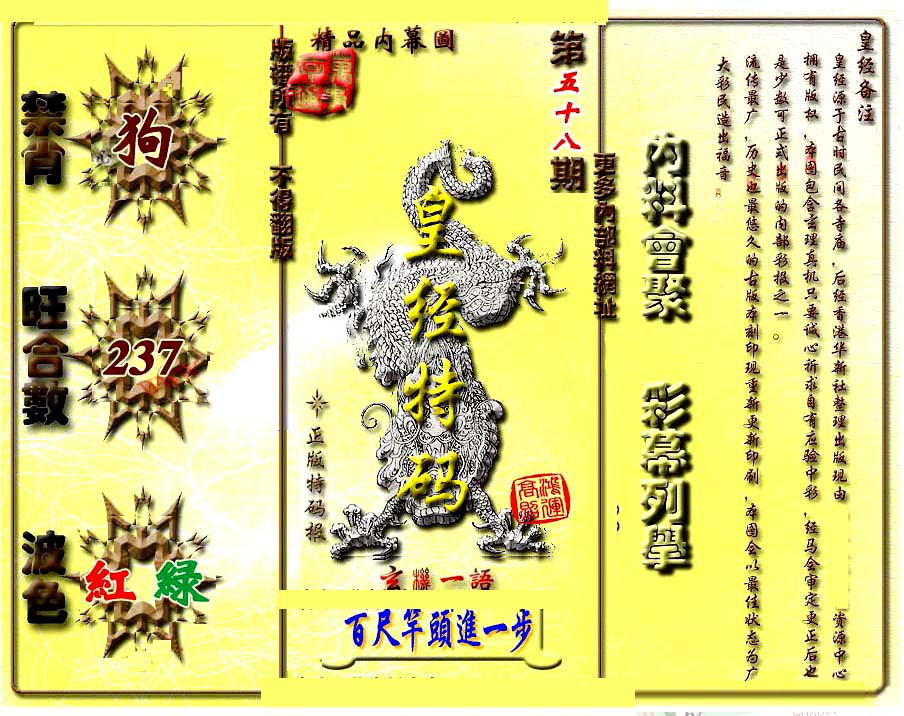 皇经备注
皇经源于古时民间各寺庙，后经香港华新社整理出版现由
资源中心
拥有版权，本图包含玄理真机只要诚心祈求自有应验中彩，经马会审定更正后也
是少数可正式出版的内部彩报之一。
流传最广，历史也最悠久的古版本刻印现重新更新印刷，本图会以最佳状态为广
大彩民造出福音
內料會聚
彩幕列舉
更多內部料網址
第五十八期
精品内幕圖
版權所有 不得翻版
皇经特码
正版特码报
鴻運高照
玄機一語
百尺竿頭進一步
禁肖
狗
旺合數
237
波色
紅 綠